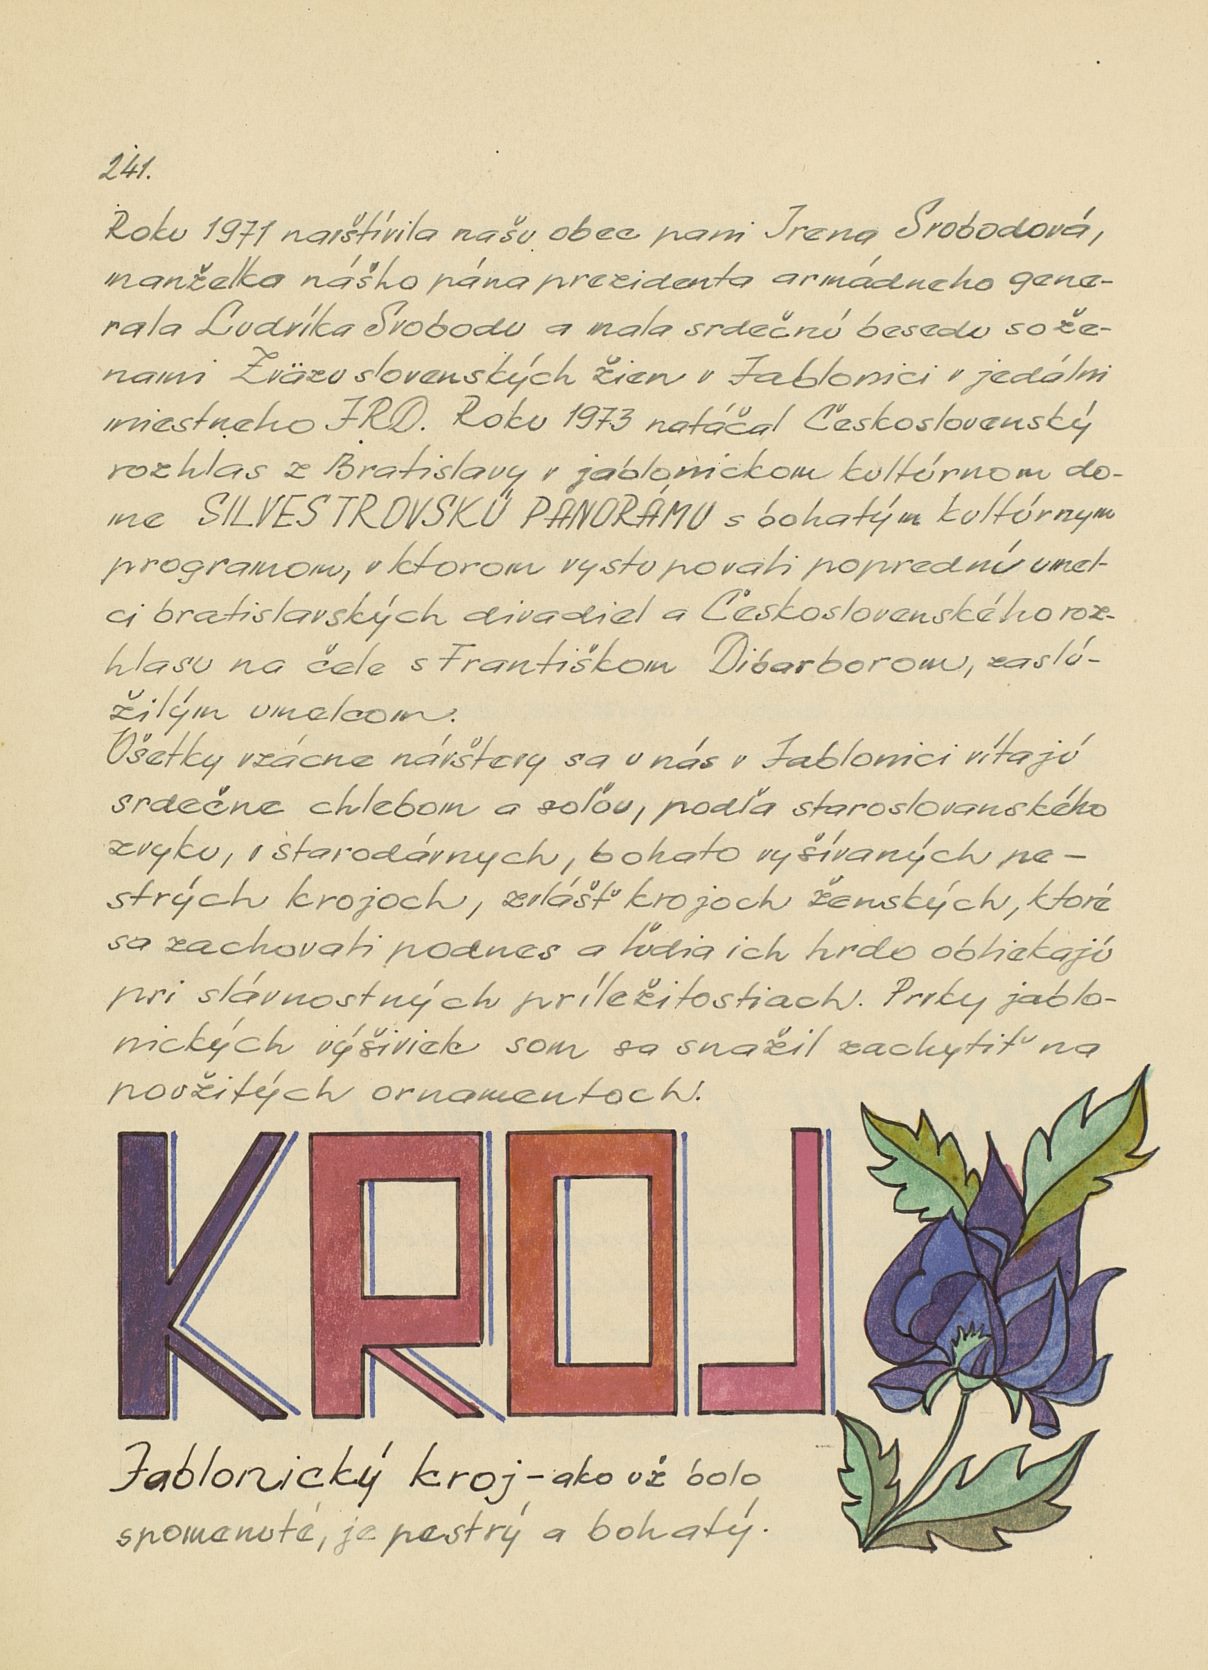 241.
Roku 1971 navštívila našu obec pani Irena Svobodová,
manželka nášho pána prezidenta armádneho gene-
rala Ludvíka Svobodu a mala srdečnú besedu so že-
nami Zväzu slovenských žien v Jablonici v jedálni
miestneho JRD. Roku 1973 natáčal Československý
rozhlas z Bratislavy v jablonickom kultúrnom do-
me SILVESTROVSKÚ PANORÁMU s bohatým kultúrnym
programom, v ktorom vystupovali poprední umel-
ci bratislavských divadiel a Československého roz-
hlasu na čele s Františkom Dibarborom, zaslú-
žilým umelcom.
Všetky vzácne návštevy sa u nás v Jablonici vítajú
srdečne chlebom a soľou, podľa staroslovanského
zvyku, v starodávnych, bohato vyšívaných pe-
strých krojoch, zvlášť krojoch ženských, ktoré
sa zachovali podnes a ľudia ich hrdo obliekajú
pri slávnostných príležitostiach. Prvky jablo-
nických výšiviek som sa snažil zachytiť na
použitých ornamentoch.
KROJ
Jablonický kroj-ako už bolo
spomenuté, je pestrý a bohatý.